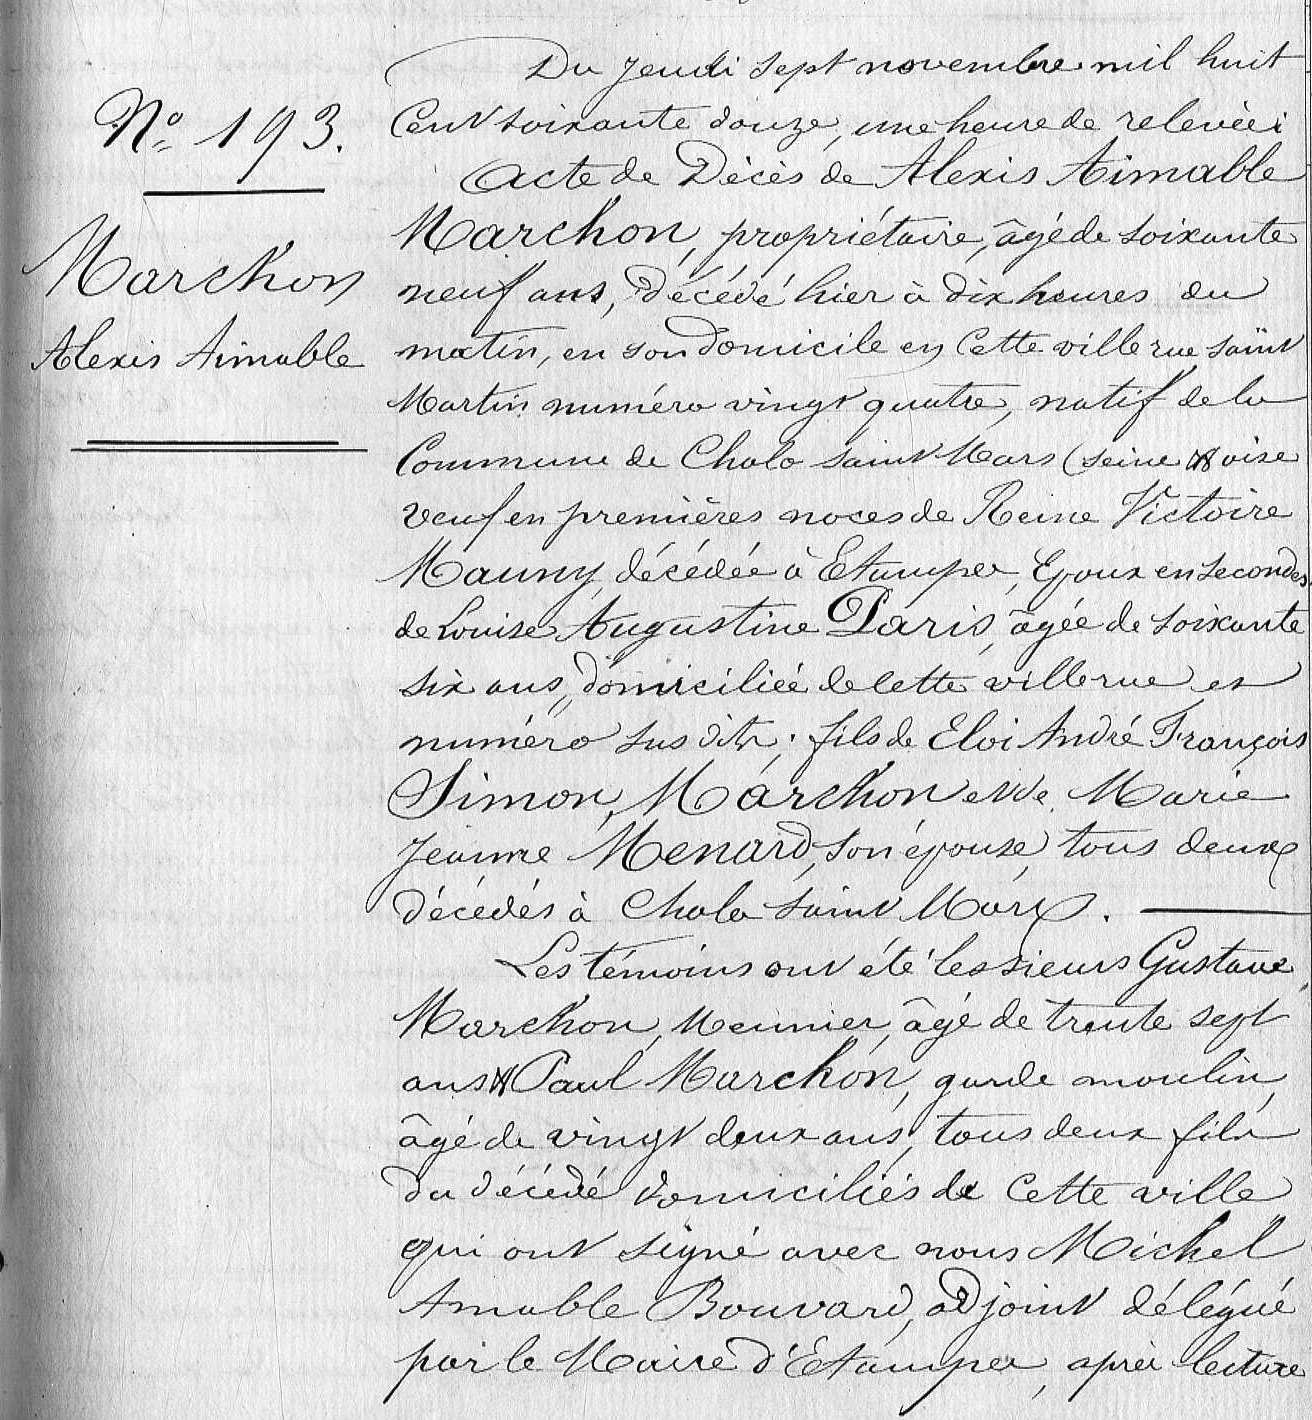 Nº 193.
Marchon
Alexis Aimable
Du jeudi sept novembre mil huit
Cent soixante douze, une heure de relevée ;
Acte de Décès de Alexis Aimable
Marchon, propriétaire, âgé de soixante
neuf ans, décédé hier à dix heures du
matin, en son domicile en cette ville rue saint
Martin numéro vingt quatre, natif de la
Commune de Chalo saint Mars (seine & oise
veuf en premières noces de Reine Victoire
Mauny, décédée à Etampes, Epoux en secondes
de Louise Augustine Paris, âgée de soixante
six ans, domiciliée de cette ville rue et
numéro sus dits ; fils de Eloi André François
Simon Marchon et de Marie
Jeanne Menard, son épouse, tous deux
décédés à Chalo saint Mars.
Les témoins ont été les sieurs Gustave
Marchon, Meunier, âgé de trente sept
ans & Paul Marchon, garde moulin,
âgé de vingt deux ans, tous deux fils
du décédé domiciliés de cette ville
qui ont signé avec nous Michel
Amable Bouvard, adjoint délégué
par le Maire d'Etampes, après lecture